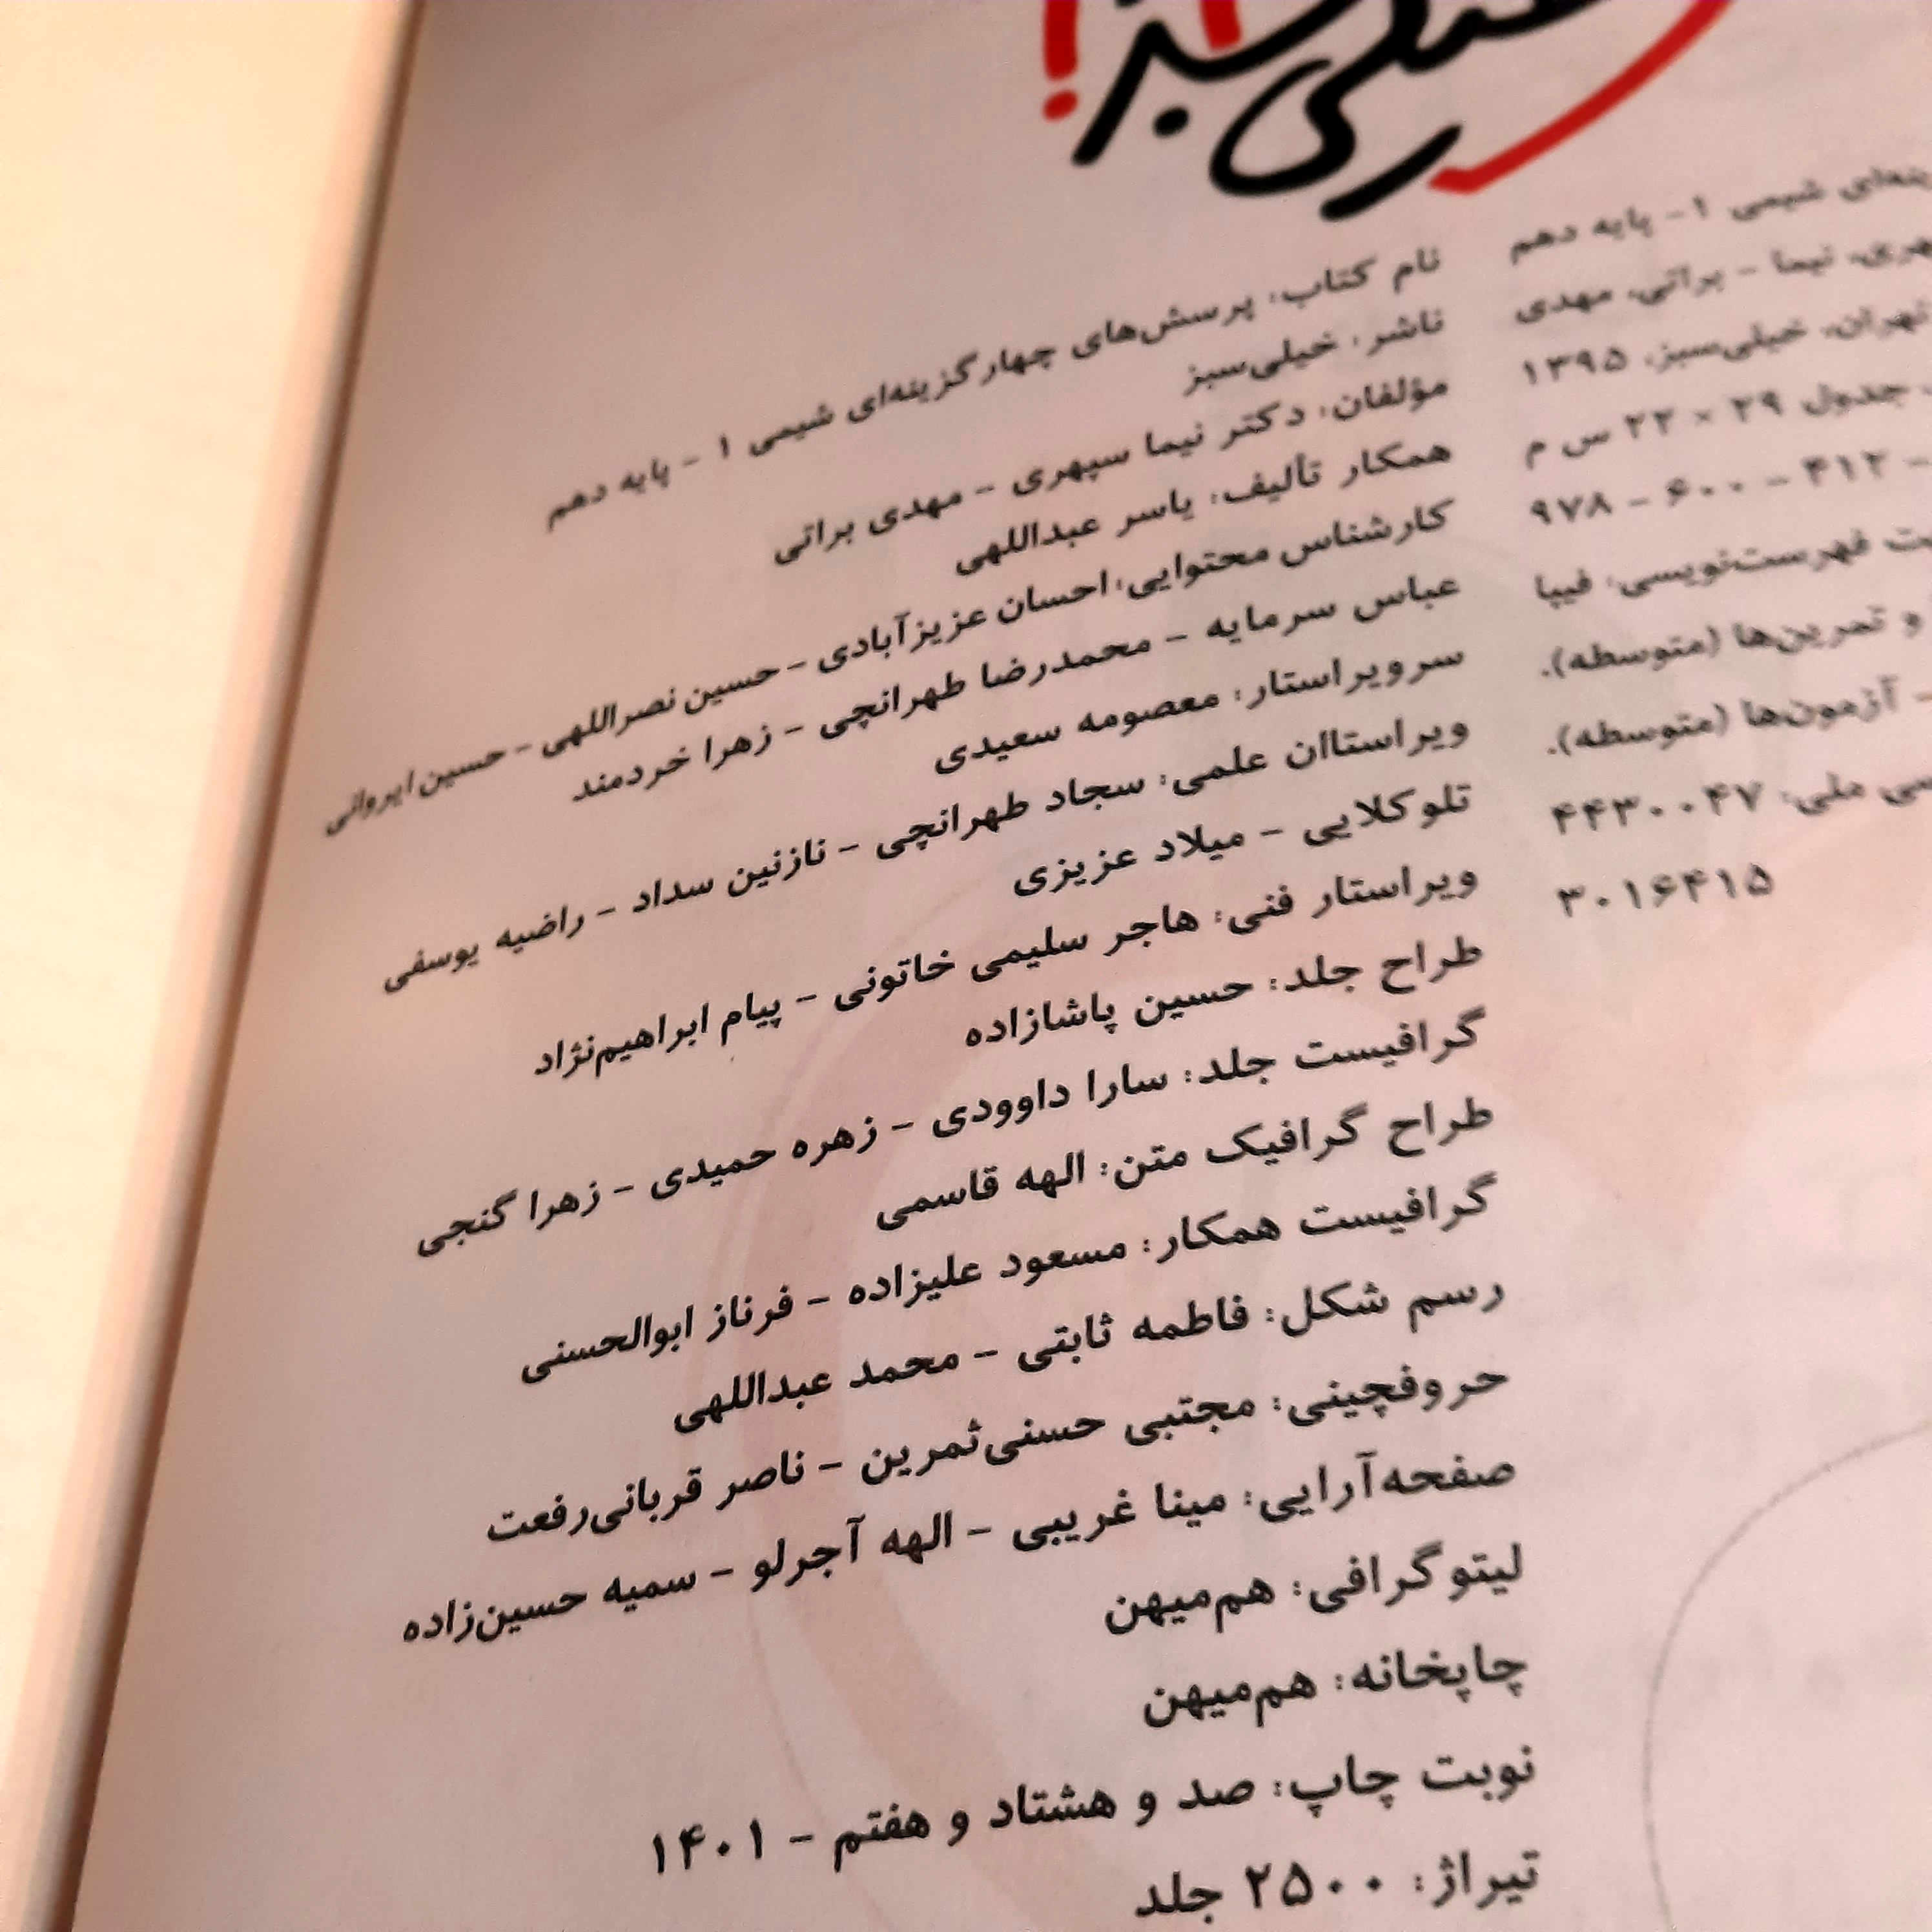 شیمی ۱- پایه دهم
نیما - براتی، مهدی
تهران، خیلی‌سبز، ۱۳۹۵
جدول ۲۹ × ۲۲ س م
۹۷۸ - ۶۰۰ - ۴۱۲ -
فهرست‌نویسی: فیپا
و تمرین‌ها (متوسطه).
- آزمون‌ها (متوسطه).
ملی: ۴۴۳۰۰۴۷
۳۰۱۶۴۱۵
نام کتاب: پرسش‌های چهارگزینه‌ای شیمی ۱ - پایه دهم
ناشر: خیلی‌سبز
مؤلفان: دکتر نیما سپهری - مهدی براتی
همکار تألیف: یاسر عبداللهی
کارشناس محتوایی: احسان عزیزآبادی - حسین نصراللهی - حسین ایروانی
عباس سرمایه - محمدرضا طهرانچی - زهرا خردمند
سرویراستار: معصومه سعیدی
ویراستاان علمی: سجاد طهرانچی - نازنین سداد - راضیه یوسفی
تلوکلایی - میلاد عزیزی
ویراستار فنی: هاجر سلیمی خاتونی - پیام ابراهیم‌نژاد
طراح جلد: حسین پاشازاده
گرافیست جلد: سارا داوودی - زهره حمیدی - زهرا گنجی
طراح گرافیک متن: الهه قاسمی
گرافیست همکار: مسعود علیزاده - فرناز ابوالحسنی
رسم شکل: فاطمه ثابتی - محمد عبداللهی
حروفچینی: مجتبی حسنی‌ثمرین - ناصر قربانی‌رفعت
صفحه‌آرایی: مینا غریبی - الهه آجرلو - سمیه حسین‌زاده
لیتوگرافی: هم‌میهن
چاپخانه: هم‌میهن
نوبت چاپ: صد و هشتاد و هفتم - ۱۴۰۱
تیراژ: ۲۵۰۰ جلد